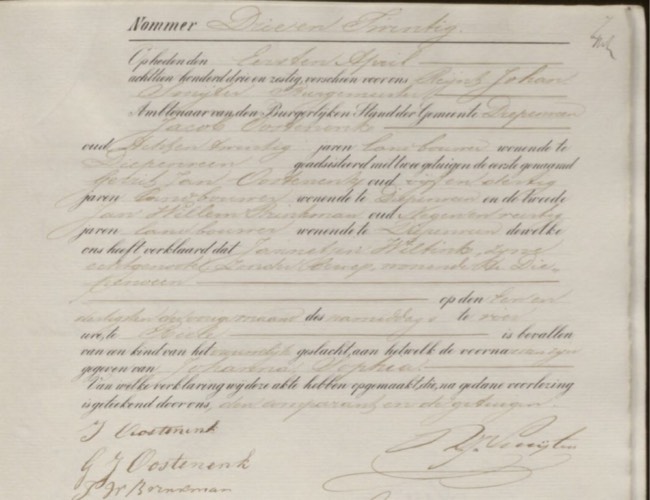 Nommer Drie en Twintig.
Op heden den Eersten April
achttien honderd drie en zestig, verschien voor ons Johan
Burgemeester
Ambtenaar van den Burgerlijken Stand der Gemeente Diepenveen
Jacob Oostenenk
oud twintig jaren landbouwer wonende te
Diepenveen geadsisteerd met twee getuigen de eerste genaamd
Gerrit Jan Oostenenk oud vijf en dertig
jaren landbouwer wonende te Diepenveen en de tweede
Jan Willem oud Negen en veertig
jaren landbouwer wonende te Diepenveen dewelke
ons heeft verklaard dat Jannetjen Wiltink, zijne
echtgenoote zonder beroep, wonende te Die-
penveen
op den Een en
dertigsten der vorige maand des namiddags te vier
ure, te is bevallen
van een kind van het vrouwelijk geslacht, aan hetwelk de voornamen zijn
gegeven van Johanna Sophia.
Van welke verklaring wij deze akte hebben opgemaakt, die, na gedane voorlezing
is geteekend door ons, den comparant en de getuigen
J Oostenenk
G J Oostenenk